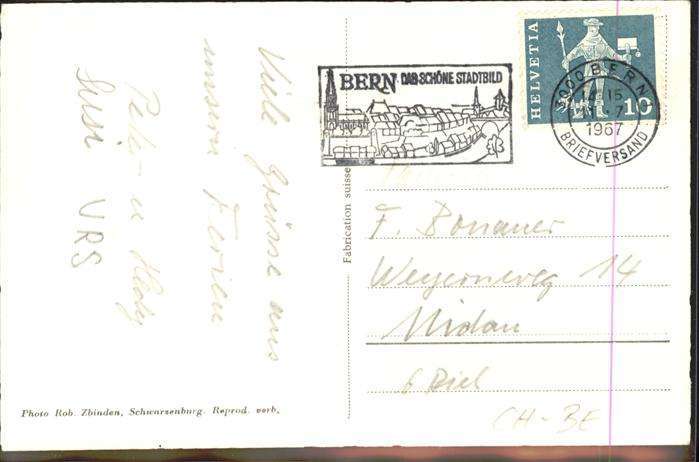 Viele Grüsse aus
unseren Ferien
Peter u Hedy
Susi URS
Photo Rob. Zbinden, Schwarzenburg. Reprod. verb.
Fabrication suisse
BERN DAS SCHÖNE STADTBILD
HELVETIA
10
3000 BERN
15
7
1967
BRIEFVERSAND
F. Bonauer
Weyernweg 14
Nidau
6 Biel
CH-BE